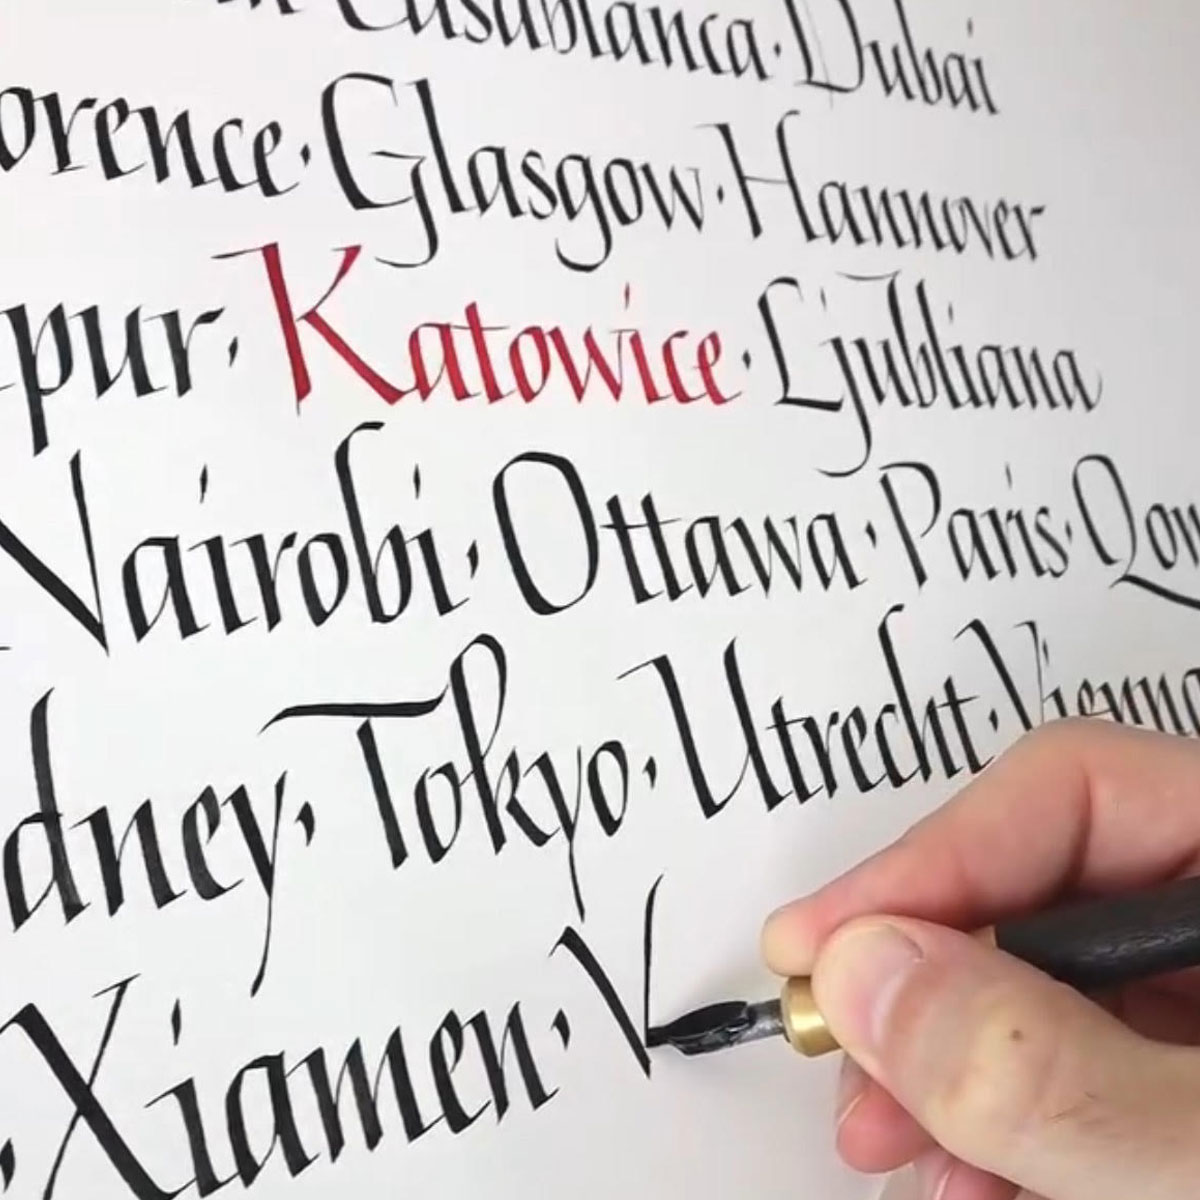 Casablanca · Dubai
orence · Glasgow · Hannover
pur · Katowice · Ljubljana
Nairobi · Ottawa · Paris · Qow
dney · Tokyo · Utrecht · Vienna
· Xiamen · V